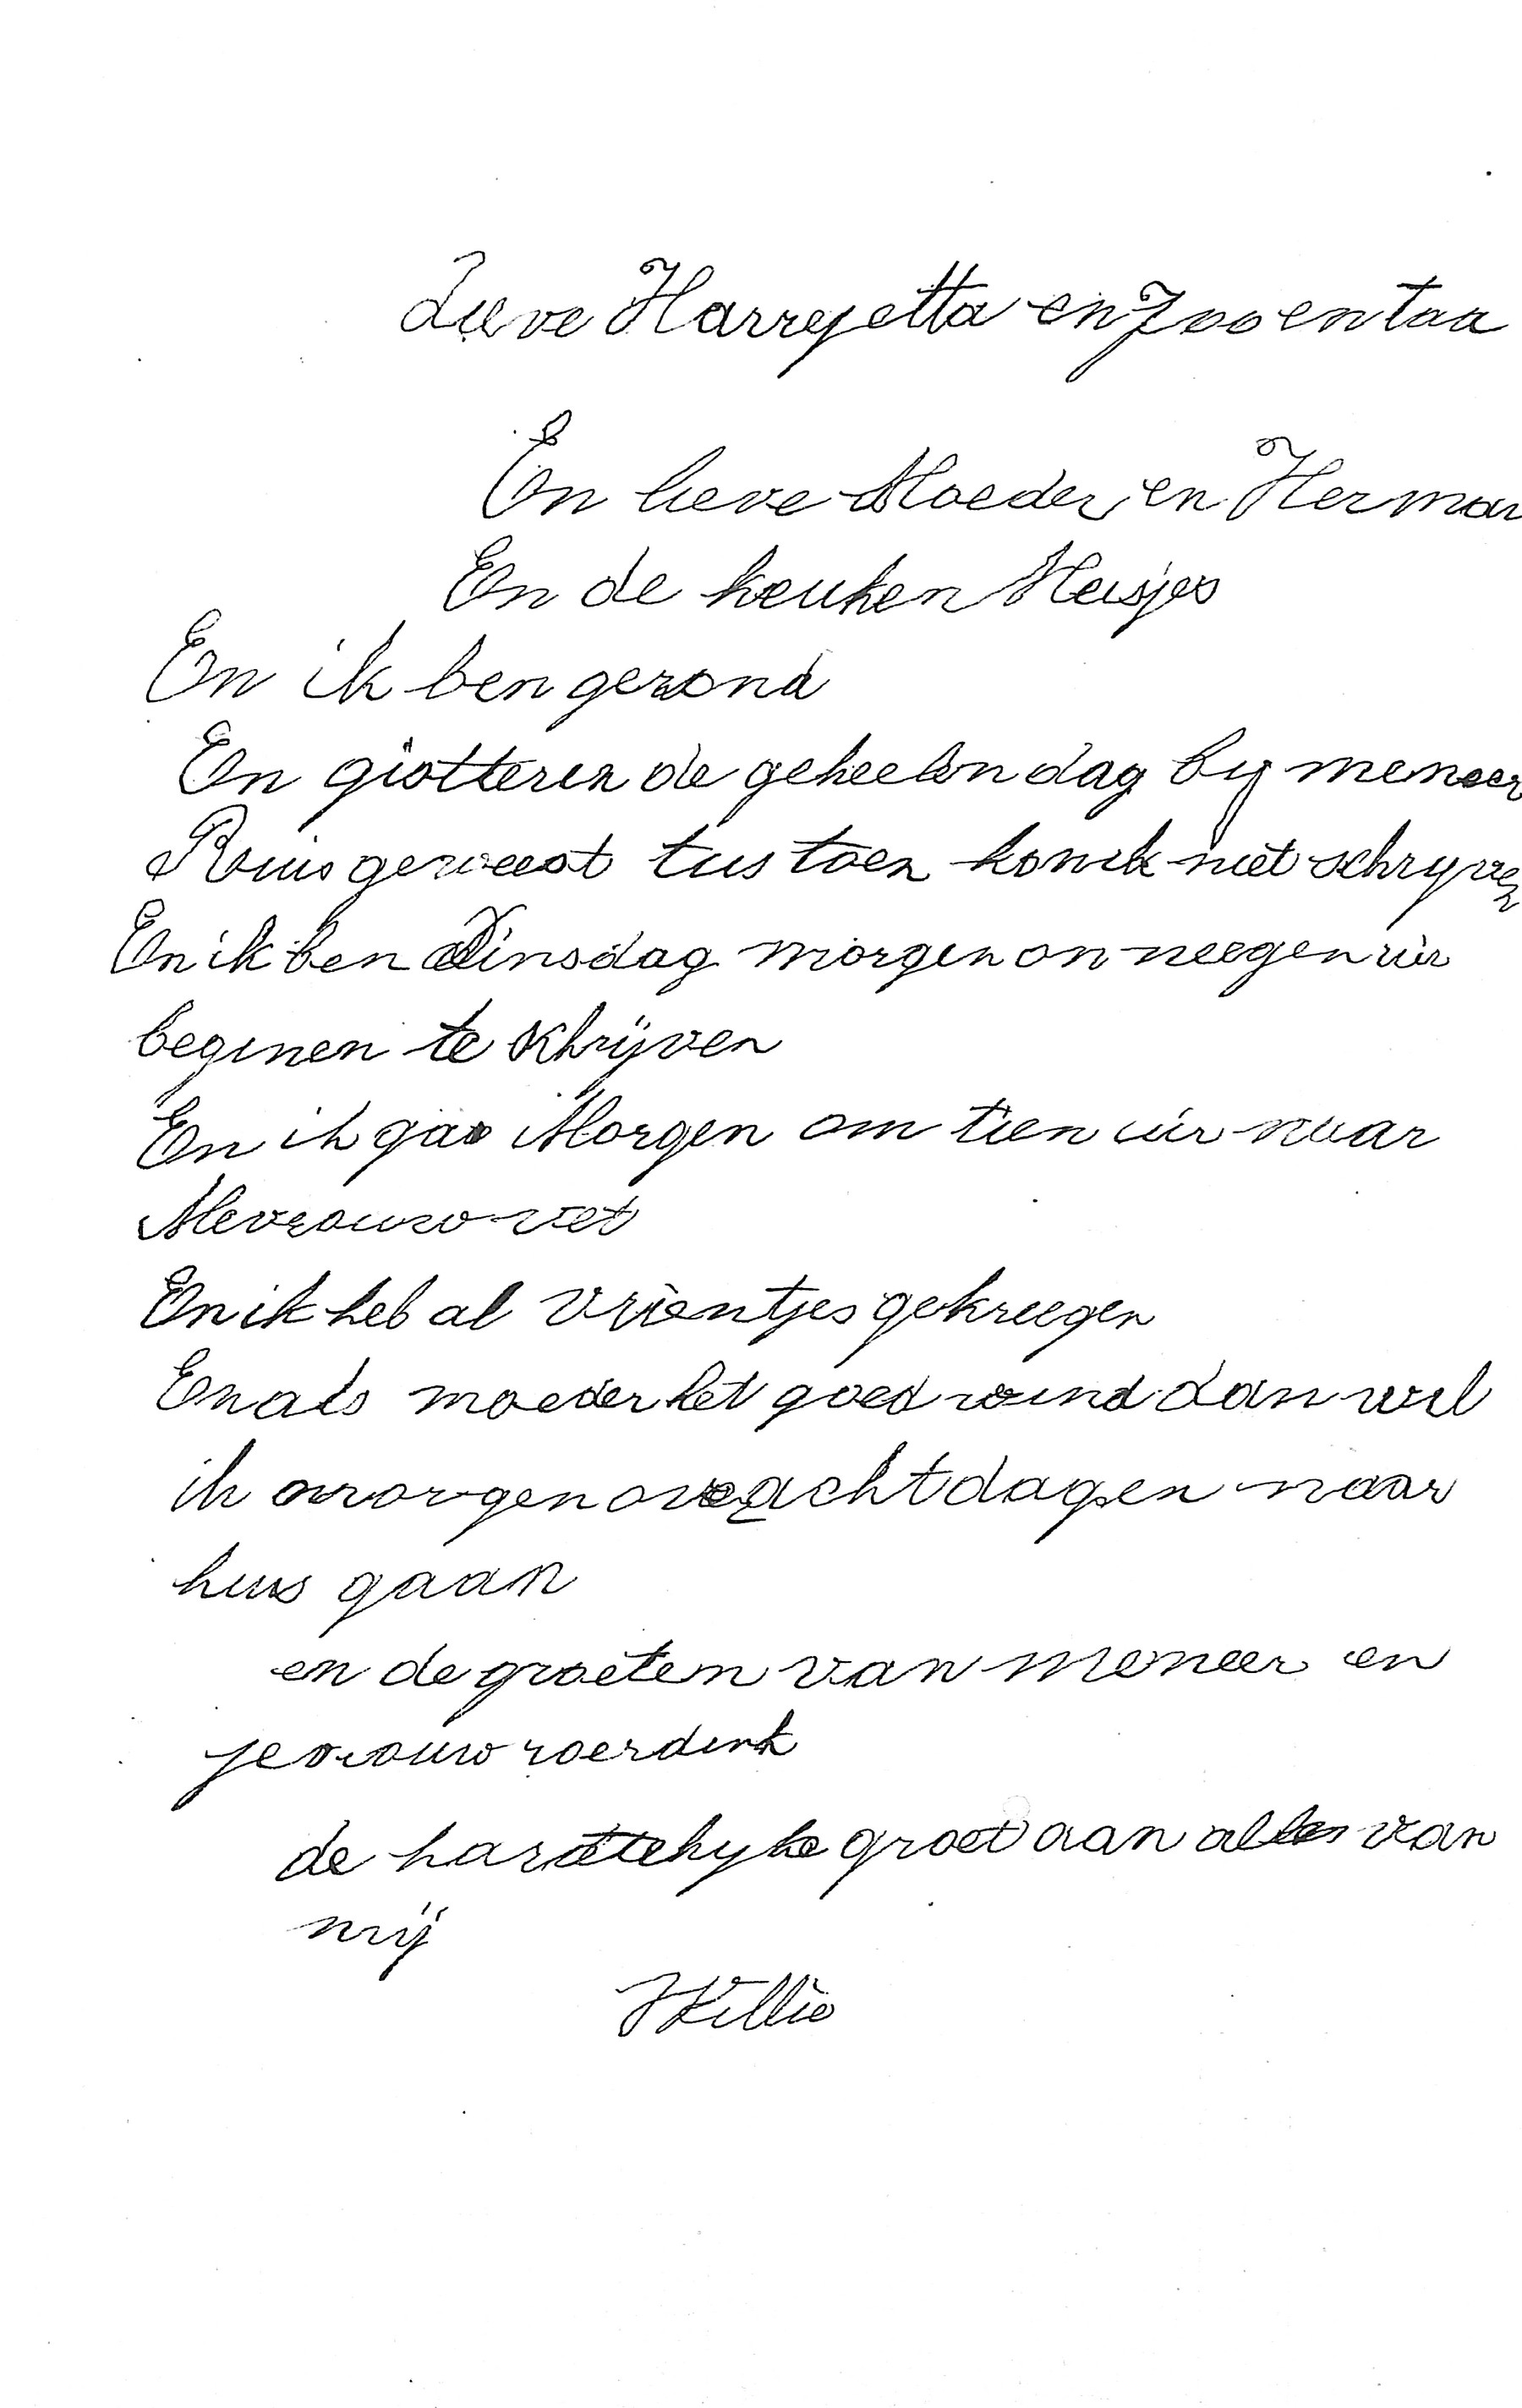 Lieve Harryetta en Jooentaa
En lieve Moeder en Herman
En de keuken Meisjes
En ik ben gezond
En gistteren de geheelen dag by meneer
Ruis geweest tus toen kon ik niet schryven
En ik ben Dinsdag morgen on neegen uur
beginen te schrijven
En ik gaa Morgen om tien uur naar
Mevrouw vet
En ik heb al vrientjes gekreegen
En als moeder het goed vind dan wil
ik morgen over acht dagen naar
huis gaan
en de groeten van meneer en
jevrouw roerdink
de harttelyke groet aan alles van
mij
Willie